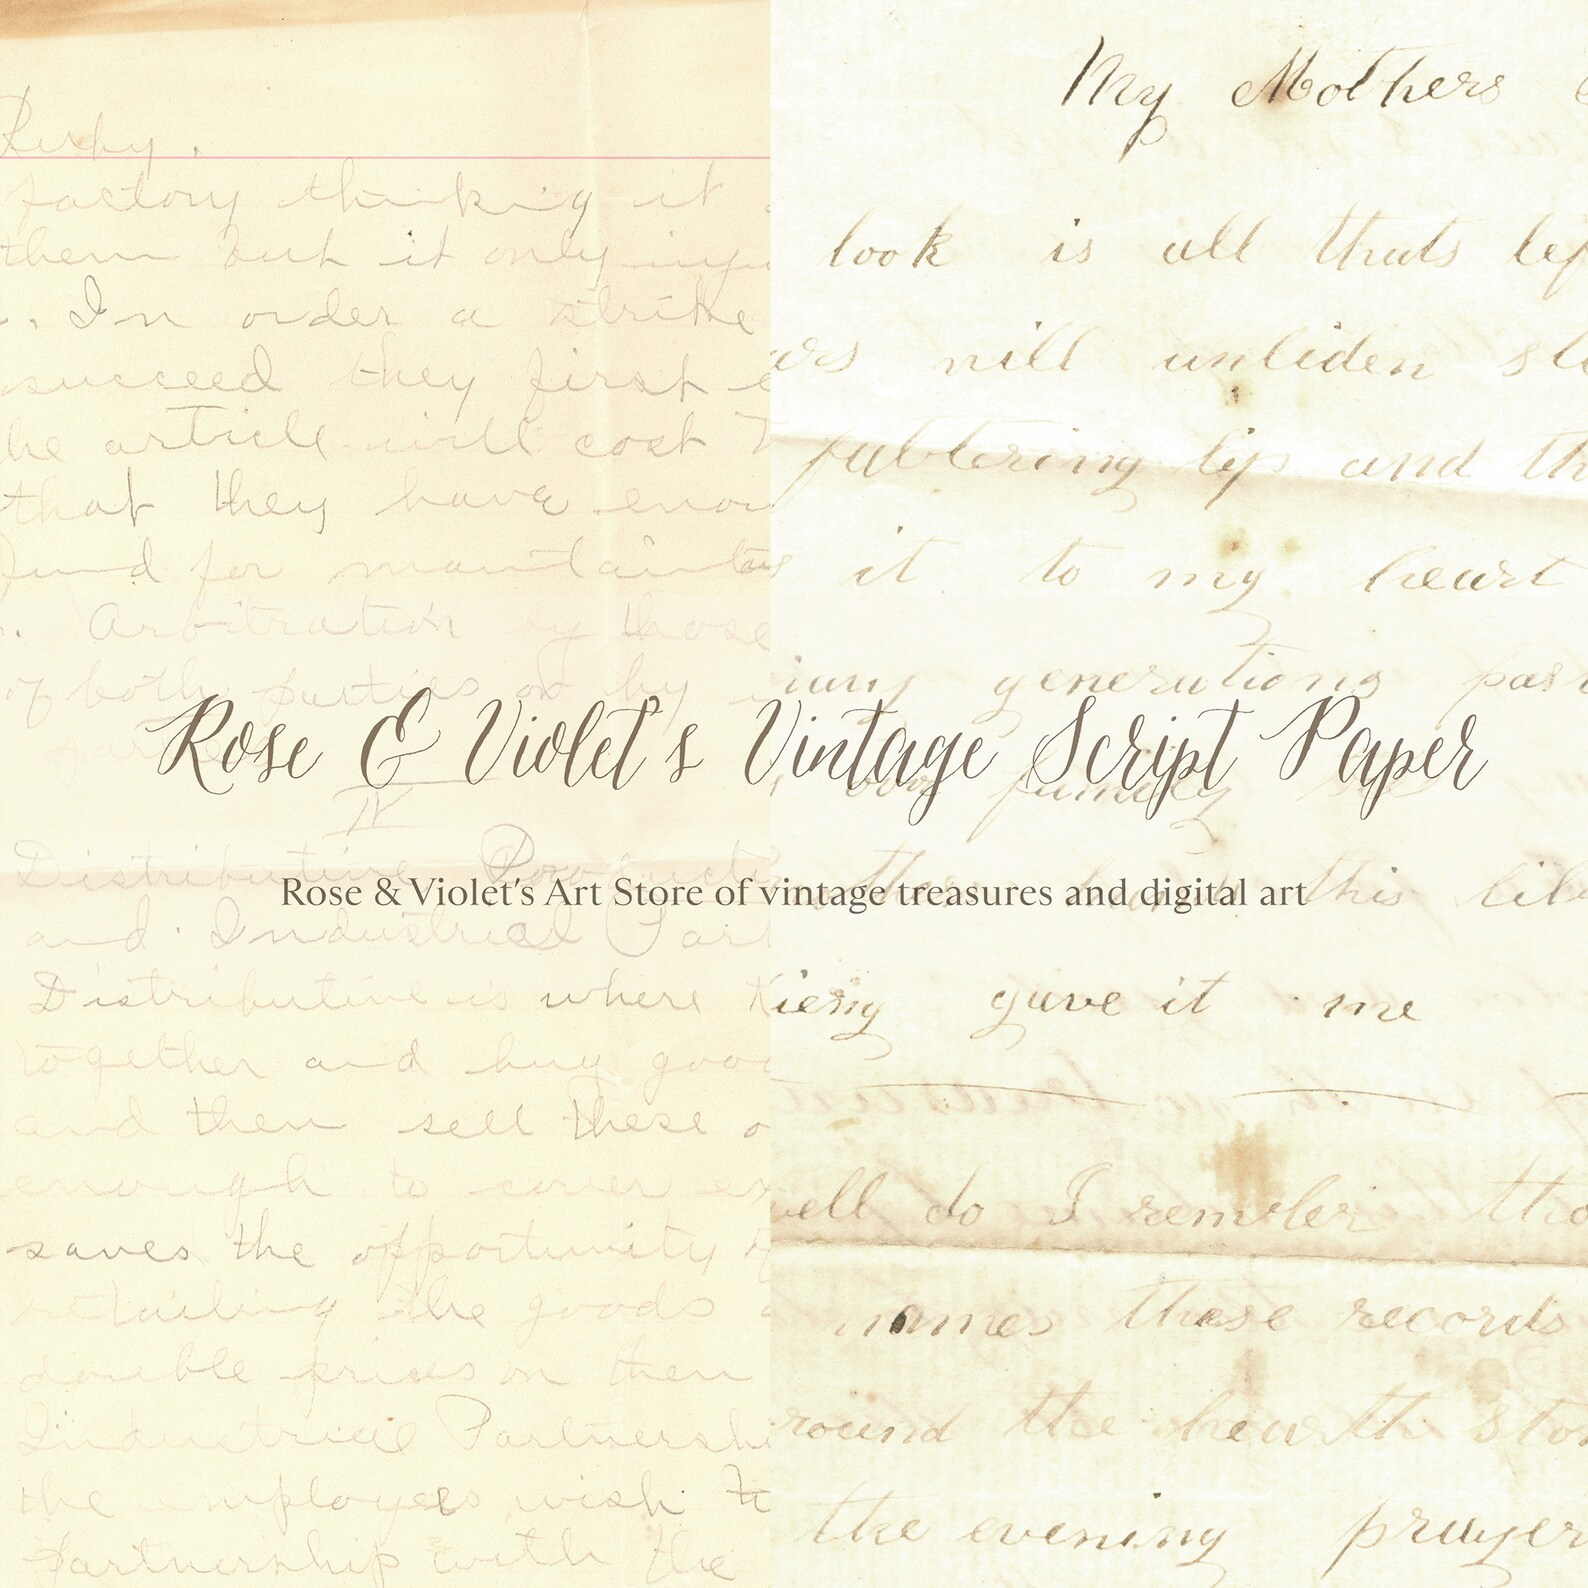 Kirby.
factory thinking it
them but it only
. In order a strike
succeed they first
he article will cost
that they have
fund for
. Arbitration by those
of both parties or by
IV
Distributive
and Industrial
Distributive is where
together and buy
and then sell these
enough to cover
saves the opportunity
retailing the goods
double prices on them
Industrial
the employees wish to
partnership with the
My Mothers
look is all thats
will unbiden
faltering lip and
it to my heart
generations
family
this
gave it me
do I rember
names these records
round the hearth
the evening prayer
Rose & Violet's Vintage Script Paper
Rose & Violet's Art Store of vintage treasures and digital art